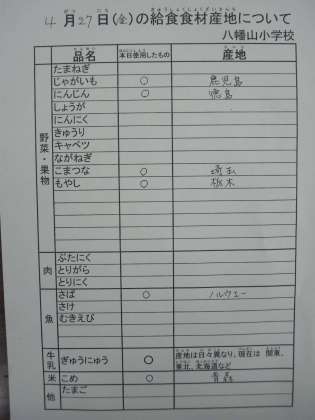 4月27日(金)の給食食材産地について
八幡山小学校
品名 本日使用したもの 産地
野菜・果物
たまねぎ
じゃがいも ○ 鹿児島
にんじん ○ 徳島
しょうが
にんにく
きゅうり
キャベツ
ながねぎ
こまつな ○ 埼玉
もやし ○ 栃木
肉
ぶたにく
とりがら
とりにく
魚
さば ○ ノルウェー
さけ
むきえび
牛乳 ぎゅうにゅう ○ 産地は日々異なり、現在は 関東、
東北、北海道など
米 こめ ○
他 たまご